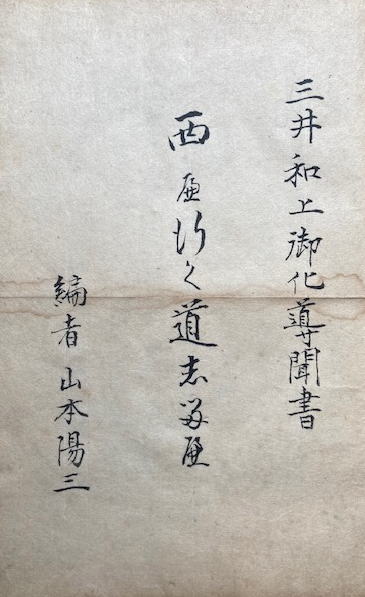 三井和上御化導聞書
西へ行く道志るへ
編者 山本陽三